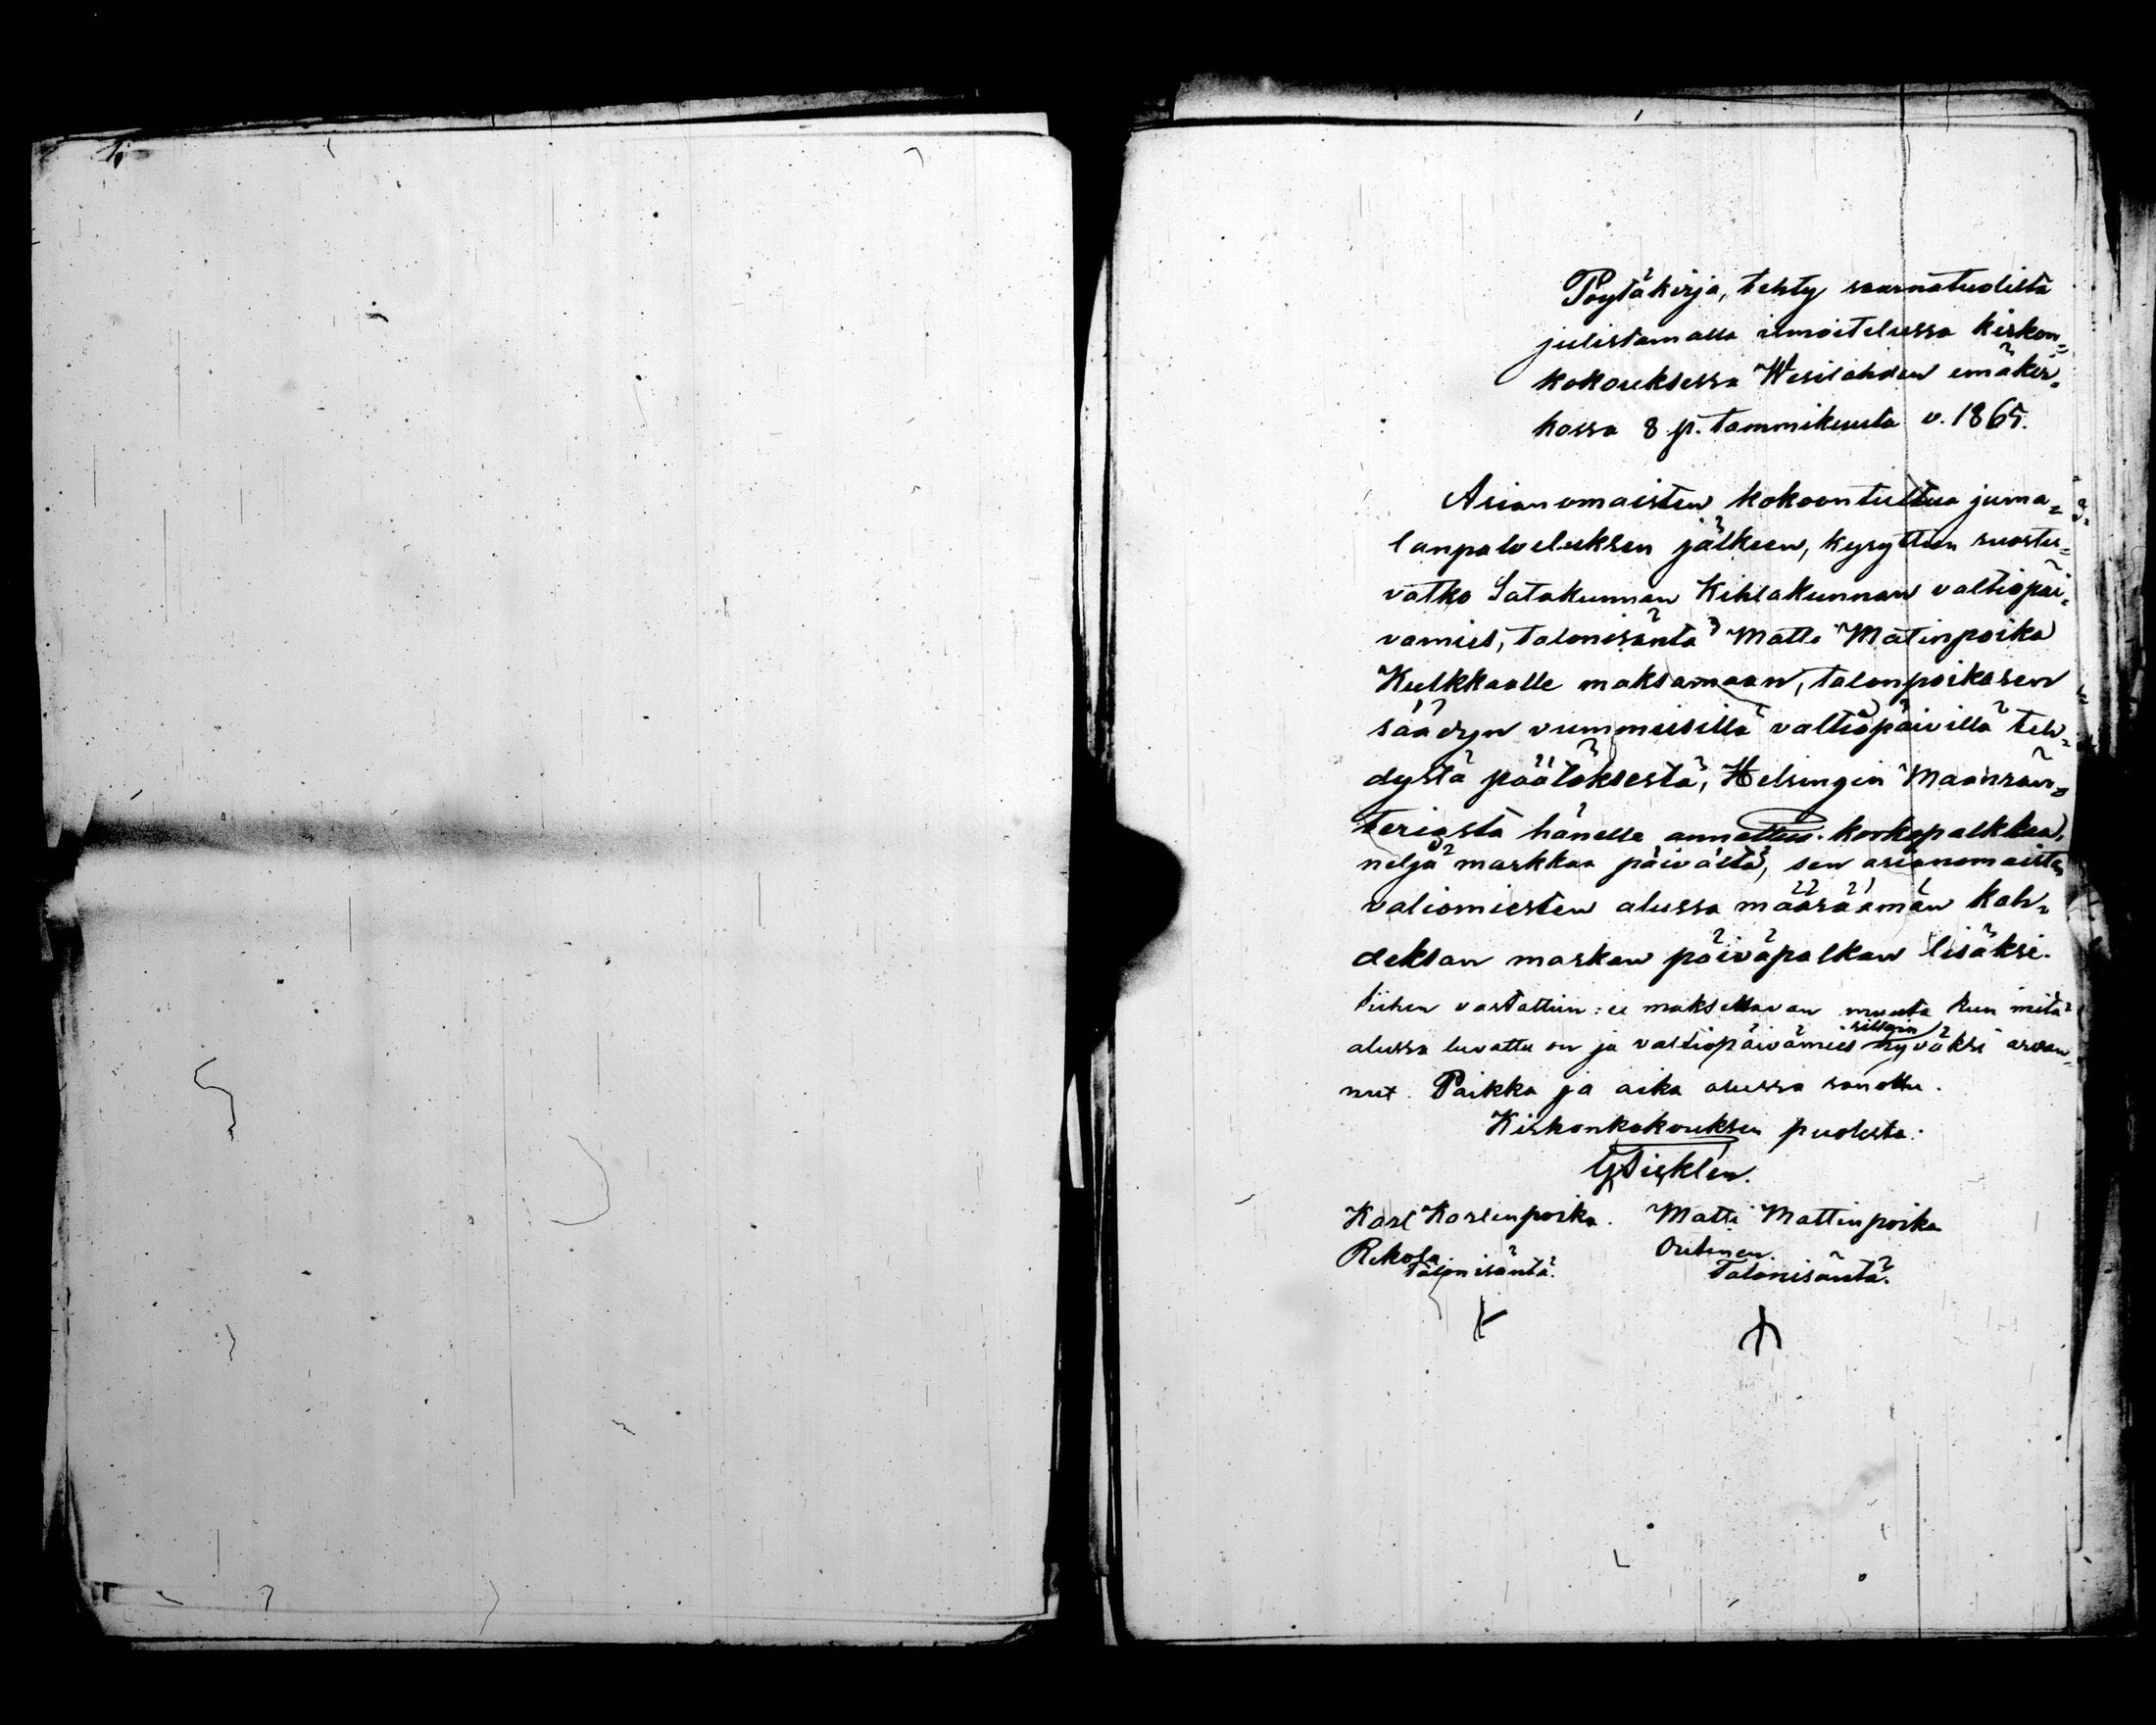 Pöytäkirja, tehty saarnatuolista
julistamalla ilmoitetussa kirkon=
kokouksessa Wesilahden emäkir=
kossa 8 p. tammikuuta v. 1865.
Asianomaisten kokoontultua juma=
lanpalveluksen jälkeen, kysyttiin suostu=
vatko Satakunnan Kihlakunnan valtiopäi=
vämies, talonisäntä Matti Matinpoika
Kulkkaalle maksamaan, talonpoikasen
säädyn viimmeisillä valtiopäivillä teh=
dystä päätöksestä, Helsingin Maanrän=
teriasta hänelle annettua korkopalkkaa,
neljä markkaa päivältä, sen asianomaisten
valiomiesten alussa määräämän kah=
deksan markan päiväpalkan lisäksi.
Tiihen vastattiin: ei maksettavan muuta kun mitä
alussa luvattu on ja valtiopäivämies silloin hyväksi arvan=
nut. Paikka ja aika alussa sanottu.
Kirkonkokouksen puolesta:
Karl Karlenpoika. Matti Mattinpoika
Rekola Outinen.
Talonisäntä. Talonisäntä.